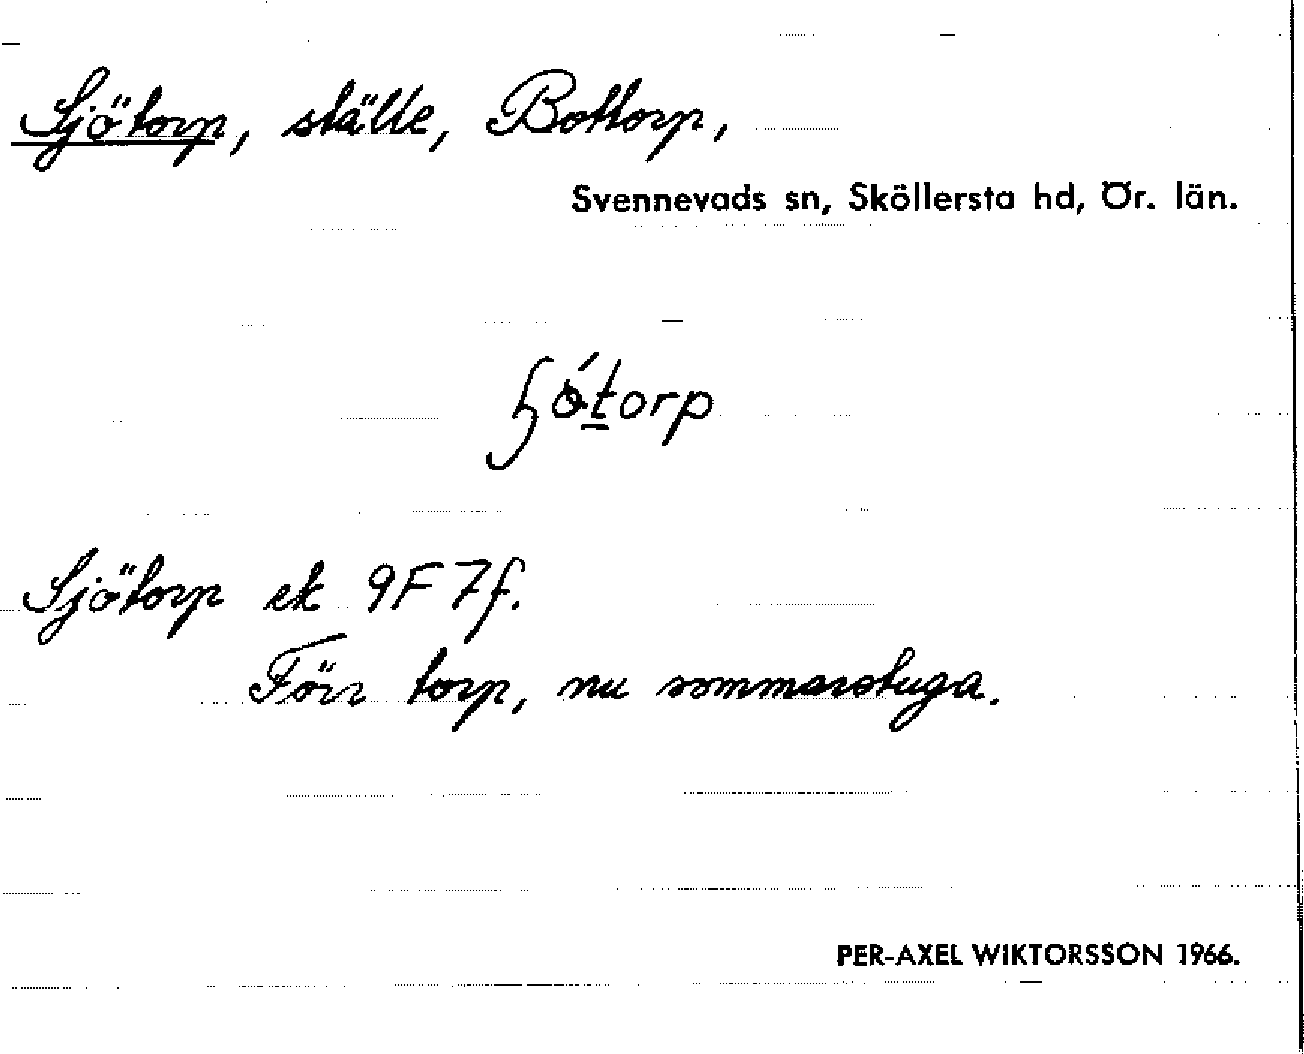 Sjötorp, ställe, Bottorp,
Svennevads sn, Sköllersta hd, Ör. län.
Sjötorp ek 9F7f.
Förr torp, nu sommarstuga.
PER-AXEL WIKTORSSON 1966.